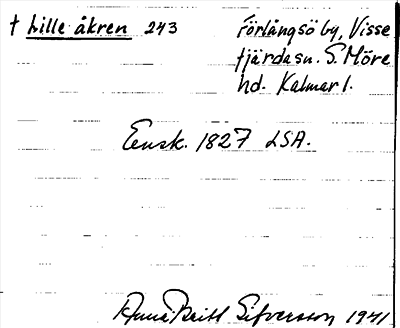 † Lille åkren 243
Förlångsö by, Visse
fjärda sn. S. Möre
hd. Kalmar l.
Ensk. 1827 LSA.
Anna Britt Sifversson 1941